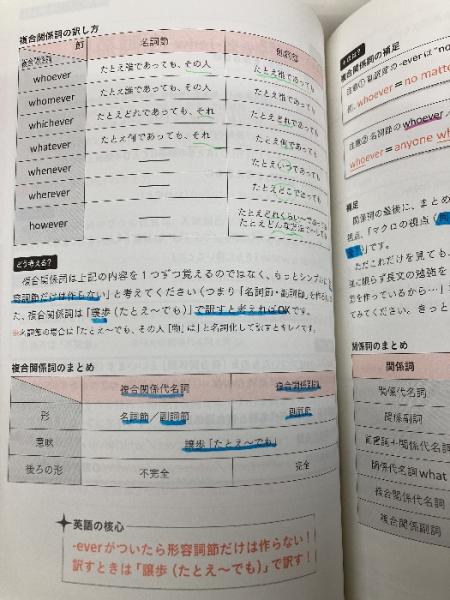 複合関係詞の訳し方
節
複合関係詞
名詞節
副詞節
whoever
たとえ誰であっても、その人
たとえ誰であっても
whomever
たとえ誰であっても、その人
たとえ誰であっても
whichever
たとえどれであっても、それ
たとえどれであっても
whatever
たとえ何であっても、それ
たとえ何であっても
whenever
たとえいつであっても
wherever
たとえどこであっても
however
たとえどれくらい〜であっても
たとえどんな方法で〜しても
どう考える?
複合関係詞は上記の内容を1つずつ覚えるのではなく、もっとシンプルに
容詞節だけは作らない」と考えてください(つまり「名詞節・副詞節」を作る
た、複合関係詞は「譲歩(たとえ〜でも)」で訳すと考えればOKです。
※名詞節の場合は「たとえ〜でも、その人[物]は」と名詞化して訳すとキレイです。
複合関係詞のまとめ
複合関係代名詞
複合関係副詞
形
名詞節/副詞節
副詞節
意味
譲歩「たとえ〜でも」
後ろの形
不完全
完全
英語の核心
-everがついたら形容詞節だけは作らない!
訳すときは「譲歩(たとえ〜でも)」で訳す!
複合関係詞の補足
注意① 副詞節の-everは"no
whoever = no matte
注意② 名詞節のwhoever
whoever = anyone wh
補足
関係詞の最後に、まとめ
視点、「マクロの視点
です。
ただこれだけを見ても、
章に限らず長文の勉強を
節を作っているから…」
てみてください。きっと
関係詞のまとめ
関係詞
関係代名詞
関係副詞
前置詞+関係代名詞
関係代名詞 what
複合関係代名詞
複合関係副詞